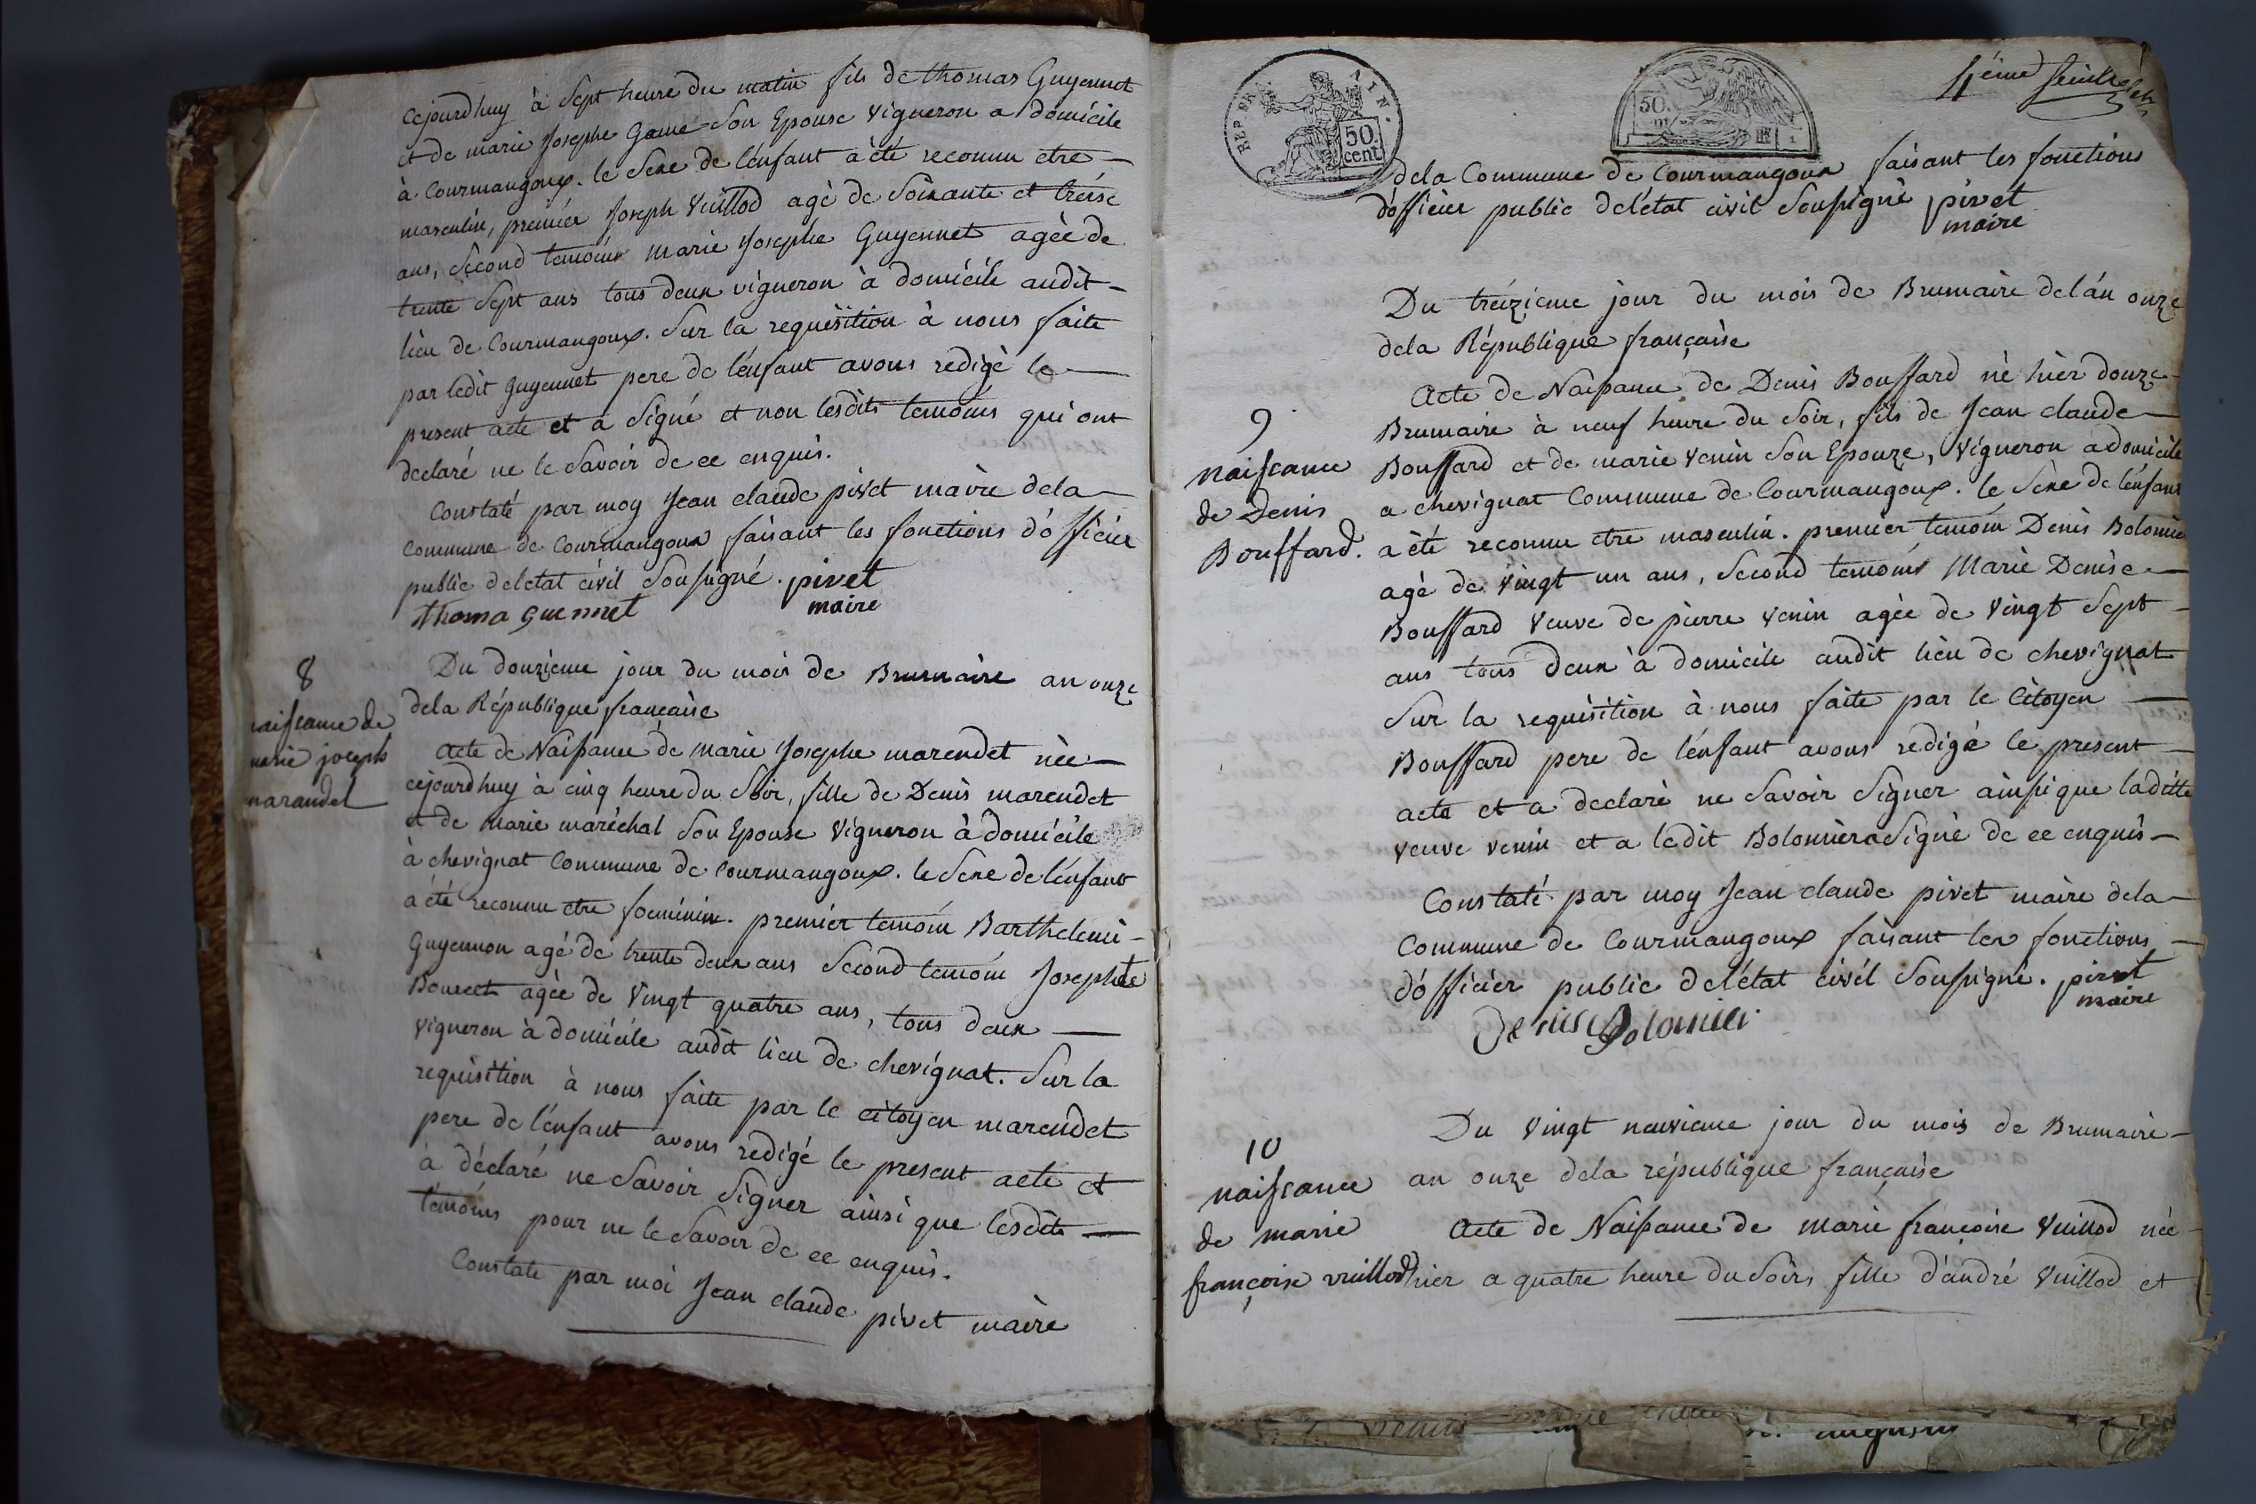 cejourdhuy à Sept heure du matin fils de thomas Guyennet
et de marie Josephe Game Son Epouse vigneron a domicile
à Courmangoux. le Sexe de l'énfant à été reconnu etre
masculin, premier Joseph Vuillod agé de Soixante et treise
ans, Sécond temoin marie Josephe Guyennet agée de
trente Sept ans tous deux vigneron à domicile audit
lieu de Courmangoux. Sur la requisition à nous faite
par ledit Guyennet pere de l'énfant avons redigé le
present acte et a Signé et non lesdits temoins qui ont
declaré ne le Savoir de ce enquis.
Constaté par moy Jean claude pivet maire dela
commune de Courmangoux faisant les fonctions d'officier
public deletat civil Soussigné. pivet
maire
thoma guennet
8
naissance de
marie joseph
marandet
Du douzieme jour du mois de Brumaire an onze
dela République francaise
Acte de Naissance de marie Josephe marendet née
cejourdhuy à cinq heure du Soir, fille de Denis marendet
et de Marie maréchal Son Epouse Vigneron à domicile
à chevignat Commune de Courmangoux. le Sexe de l'énfant
a été reconnu etre foeminin. premier temoin Barthelemi
Guyennon agé de trente deux ans Second temoin Josephte
Bouvet agée de Vingt quatre ans, tous deux
vigneron à domicile audit lieu de chevignat. Sur la
requisition à nous faite par le citoyen marendet
pere de l'énfant avons redigé le present acte et
à déclaré ne Savoir Signer ainsi que lesdits
témoins pour ne le Savoir de ce enquis.
Constate par moi Jean claude pivet maire
REP. AIN.
50.
cent.
50.
4ème feuillet
dela Commune de Courmangoux faisant les fonctions
d'officier public delétat civil Soussigné pivet
maire
Du treizieme jour du mois de Brumaire delán onze
dela République française
9
naissance
de Denis
Bouffard.
Acte de Naissance de Denis Bouffard né hier douze
Brumaire à neuf heure du Soir, fils de Jean claude
Bouffard et de marie venin Son Epouze, Vigneron a domicile
a chevignat Commune de Courmangoux. le Sèxe de l'énfant
a été reconnu etre masculin. premier temoin Denis Bolomier
agé de vingt un ans, Second temoins Marie Denise
Bouffard Veuve de pierre venin agée de Vingt Sept
ans tous deux à domicile audit lieu de chevignat
Sur la requisition à nous faite par le Citoyen
Bouffard pere de l'énfant avons redigé le present
acte et a declaré ne Savoir Signer ainsi que ladite
veuve venin et a ledit Bolomier a Signé de ce enquis
Constaté par moy Jean claude pivet maire dela
Commune de Courmangoux faisant les fonctions
d'officier public delétat civil Soussigné. pivet
maire
Denis Bolomier
Du Vingt neuvieme jour du mois de Brumaire
an onze dela république française
10
naissance
de marie
françoise vuillod
Acte de Naissance de marie françoise Vuillod née
hier a quatre heure du Soir, fille d'andré Vuillod et